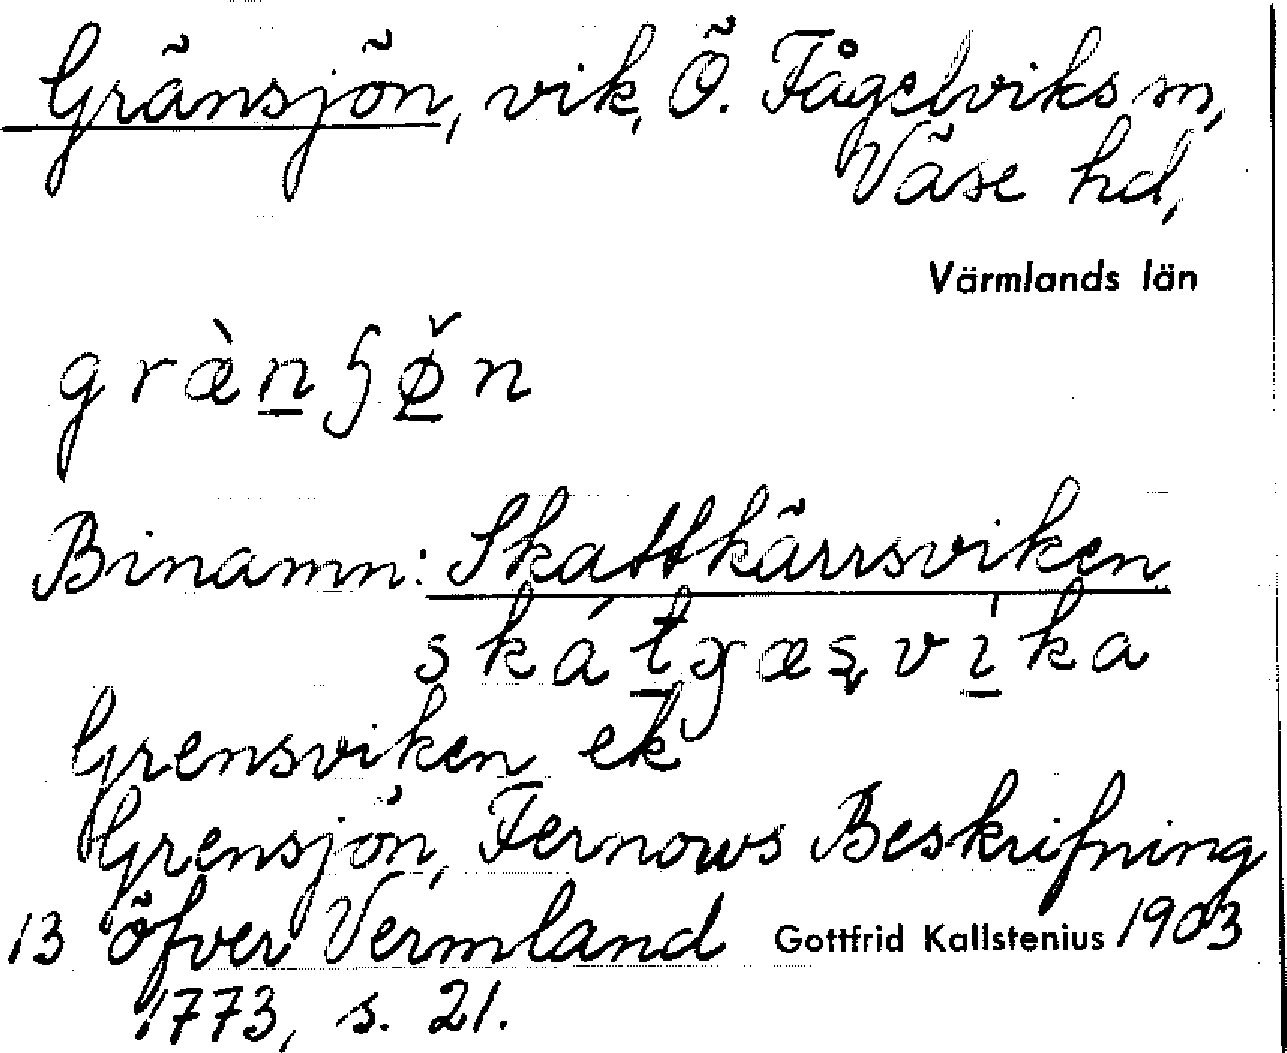 Gränsjön, vik, Ö. Fågelviks sn,
Väse hd,
Värmlands län
græ̀n̲ʂø̲̌n
Binamn: Skattkärrsviken
skát̲gæʂvı̲̀ka
Grensviken ek
Grensjön, Fernows Beskrifning
13 öfver Vermland Gottfrid Kallstenius 1903
1773, s. 21.